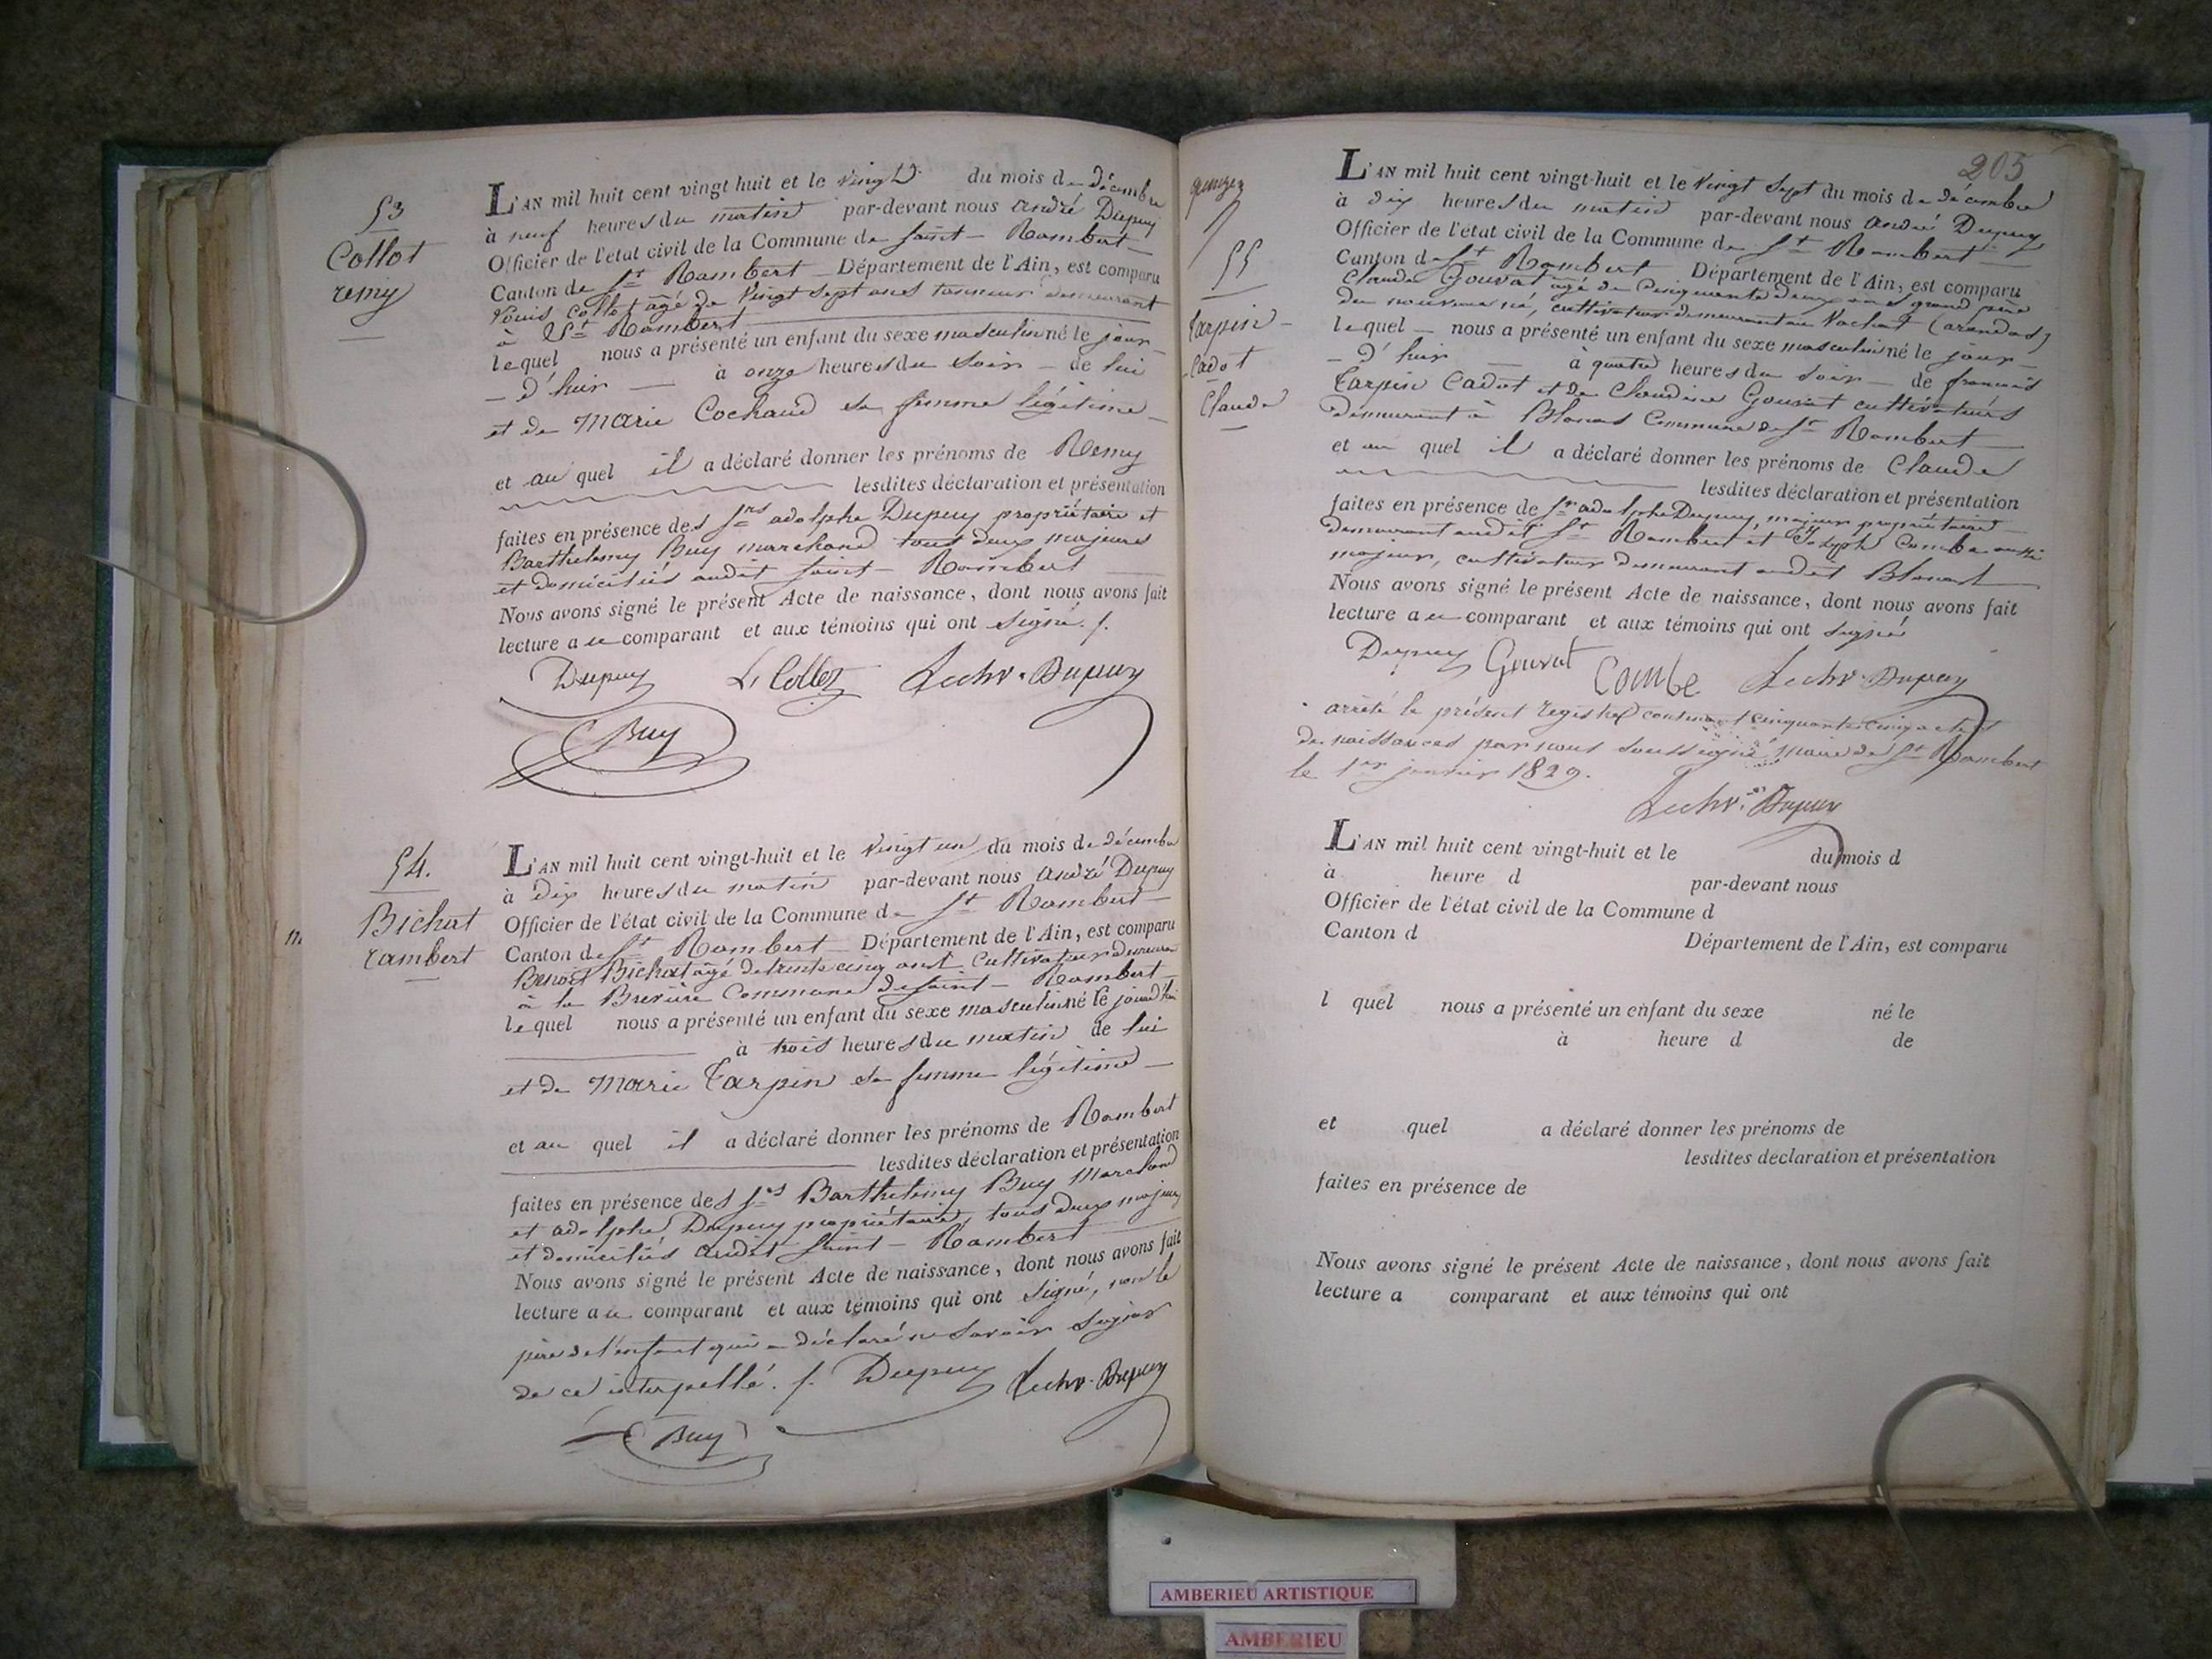 53
Collot
remy
L'AN mil huit cent vingt huit et le vingt du mois de décembre
à neuf heures du matin par-devant nous andré Dupuy
Officier de l'état civil de la Commune de saint-Rambert
Canton de St Rambert Département de l'Ain, est comparu
Louis Collot âgé de vingt sept ans tanneur demeurant
à St Rambert
lequel nous a présenté un enfant du sexe masculin né le jour
d'hier à onze heures du soir de lui
et de Marie Cochaud sa femme légitime
et au quel il a déclaré donner les prénoms de Remy
lesdites déclaration et présentation
faites en présence des Srs adolphe Dupuy propriétaire et
Barthelemy Buy marchand tout deux majeurs
et domiciliés audit saint-Rambert
Nous avons signé le présent Acte de naissance, dont nous avons fait
lecture au comparant et aux témoins qui ont signé.
Dupuy L. Collot Dupuy
Buy
54.
Bichat
rambert
L'AN mil huit cent vingt-huit et le vingt un du mois de décembre
à dix heures du matin par-devant nous andré Dupuy
Officier de l'état civil de la Commune de St Rambert
Canton de St Rambert Département de l'Ain, est comparu
Benoit Bichat âgé de trente cinq ans Cultivateur
à la Brevière Commune de saint-Rambert
lequel nous a présenté un enfant du sexe masculin né le jourd'hui
à trois heures du matin de lui
et de Marie Tarpin sa femme légitime
et au quel il a déclaré donner les prénoms de Rambert
lesdites déclaration et présentation
faites en présence des Srs Barthelemy Buy Marchand
et adolphe Dupuy propriétaire, tous deux majeurs
et domiciliés audit saint-Rambert
Nous avons signé le présent Acte de naissance, dont nous avons fait
lecture au comparant et aux témoins qui ont signé, non le
père de l'enfant qui a déclaré ne savoir signer
de ce interpellé. Dupuy Dupuy
Buy
205
55
Tarpin
Cadot
Claude
L'AN mil huit cent vingt-huit et le vingt sept du mois de décembre
à dix heures du matin par-devant nous andré Dupuy
Officier de l'état civil de la Commune de St Rambert
Canton de St Rambert Département de l'Ain, est comparu
Claude Gouvat âgé de Cinquante deux ans grand père
du nouveau né, cultivateur demeurant au Vachat (arandas)
lequel nous a présenté un enfant du sexe masculin né le jour
d'hier à quatre heures du soir de francois
Tarpin Cadot et de Claudine Gouvat cultivateurs
demeurant à Blanas Commune de St Rambert
et au quel il a déclaré donner les prénoms de Claude
lesdites déclaration et présentation
faites en présence de Sr adolphe Dupuy, majeur propriétaire
demeurant audit St Rambert et Joseph Combe aussi
majeur, cultivateur demeurant audit Blanas
Nous avons signé le présent Acte de naissance, dont nous avons fait
lecture au comparant et aux témoins qui ont signé
Dupuy Gouvat Combe Dupuy
arrêté le présent registre contenant cinquante cinq actes
de naissances par nous soussigné Maire de St Rambert
le 1er janvier 1829.
Dupuy
L'AN mil huit cent vingt-huit et le du mois d
à heure d par-devant nous
Officier de l'état civil de la Commune d
Canton d Département de l'Ain, est comparu
l quel nous a présenté un enfant du sexe né le
à heure d de
et quel a déclaré donner les prénoms de
lesdites déclaration et présentation
faites en présence de
Nous avons signé le présent Acte de naissance, dont nous avons fait
lecture a comparant et aux témoins qui ont
AMBERIEU ARTISTIQUE
AMBERIEU